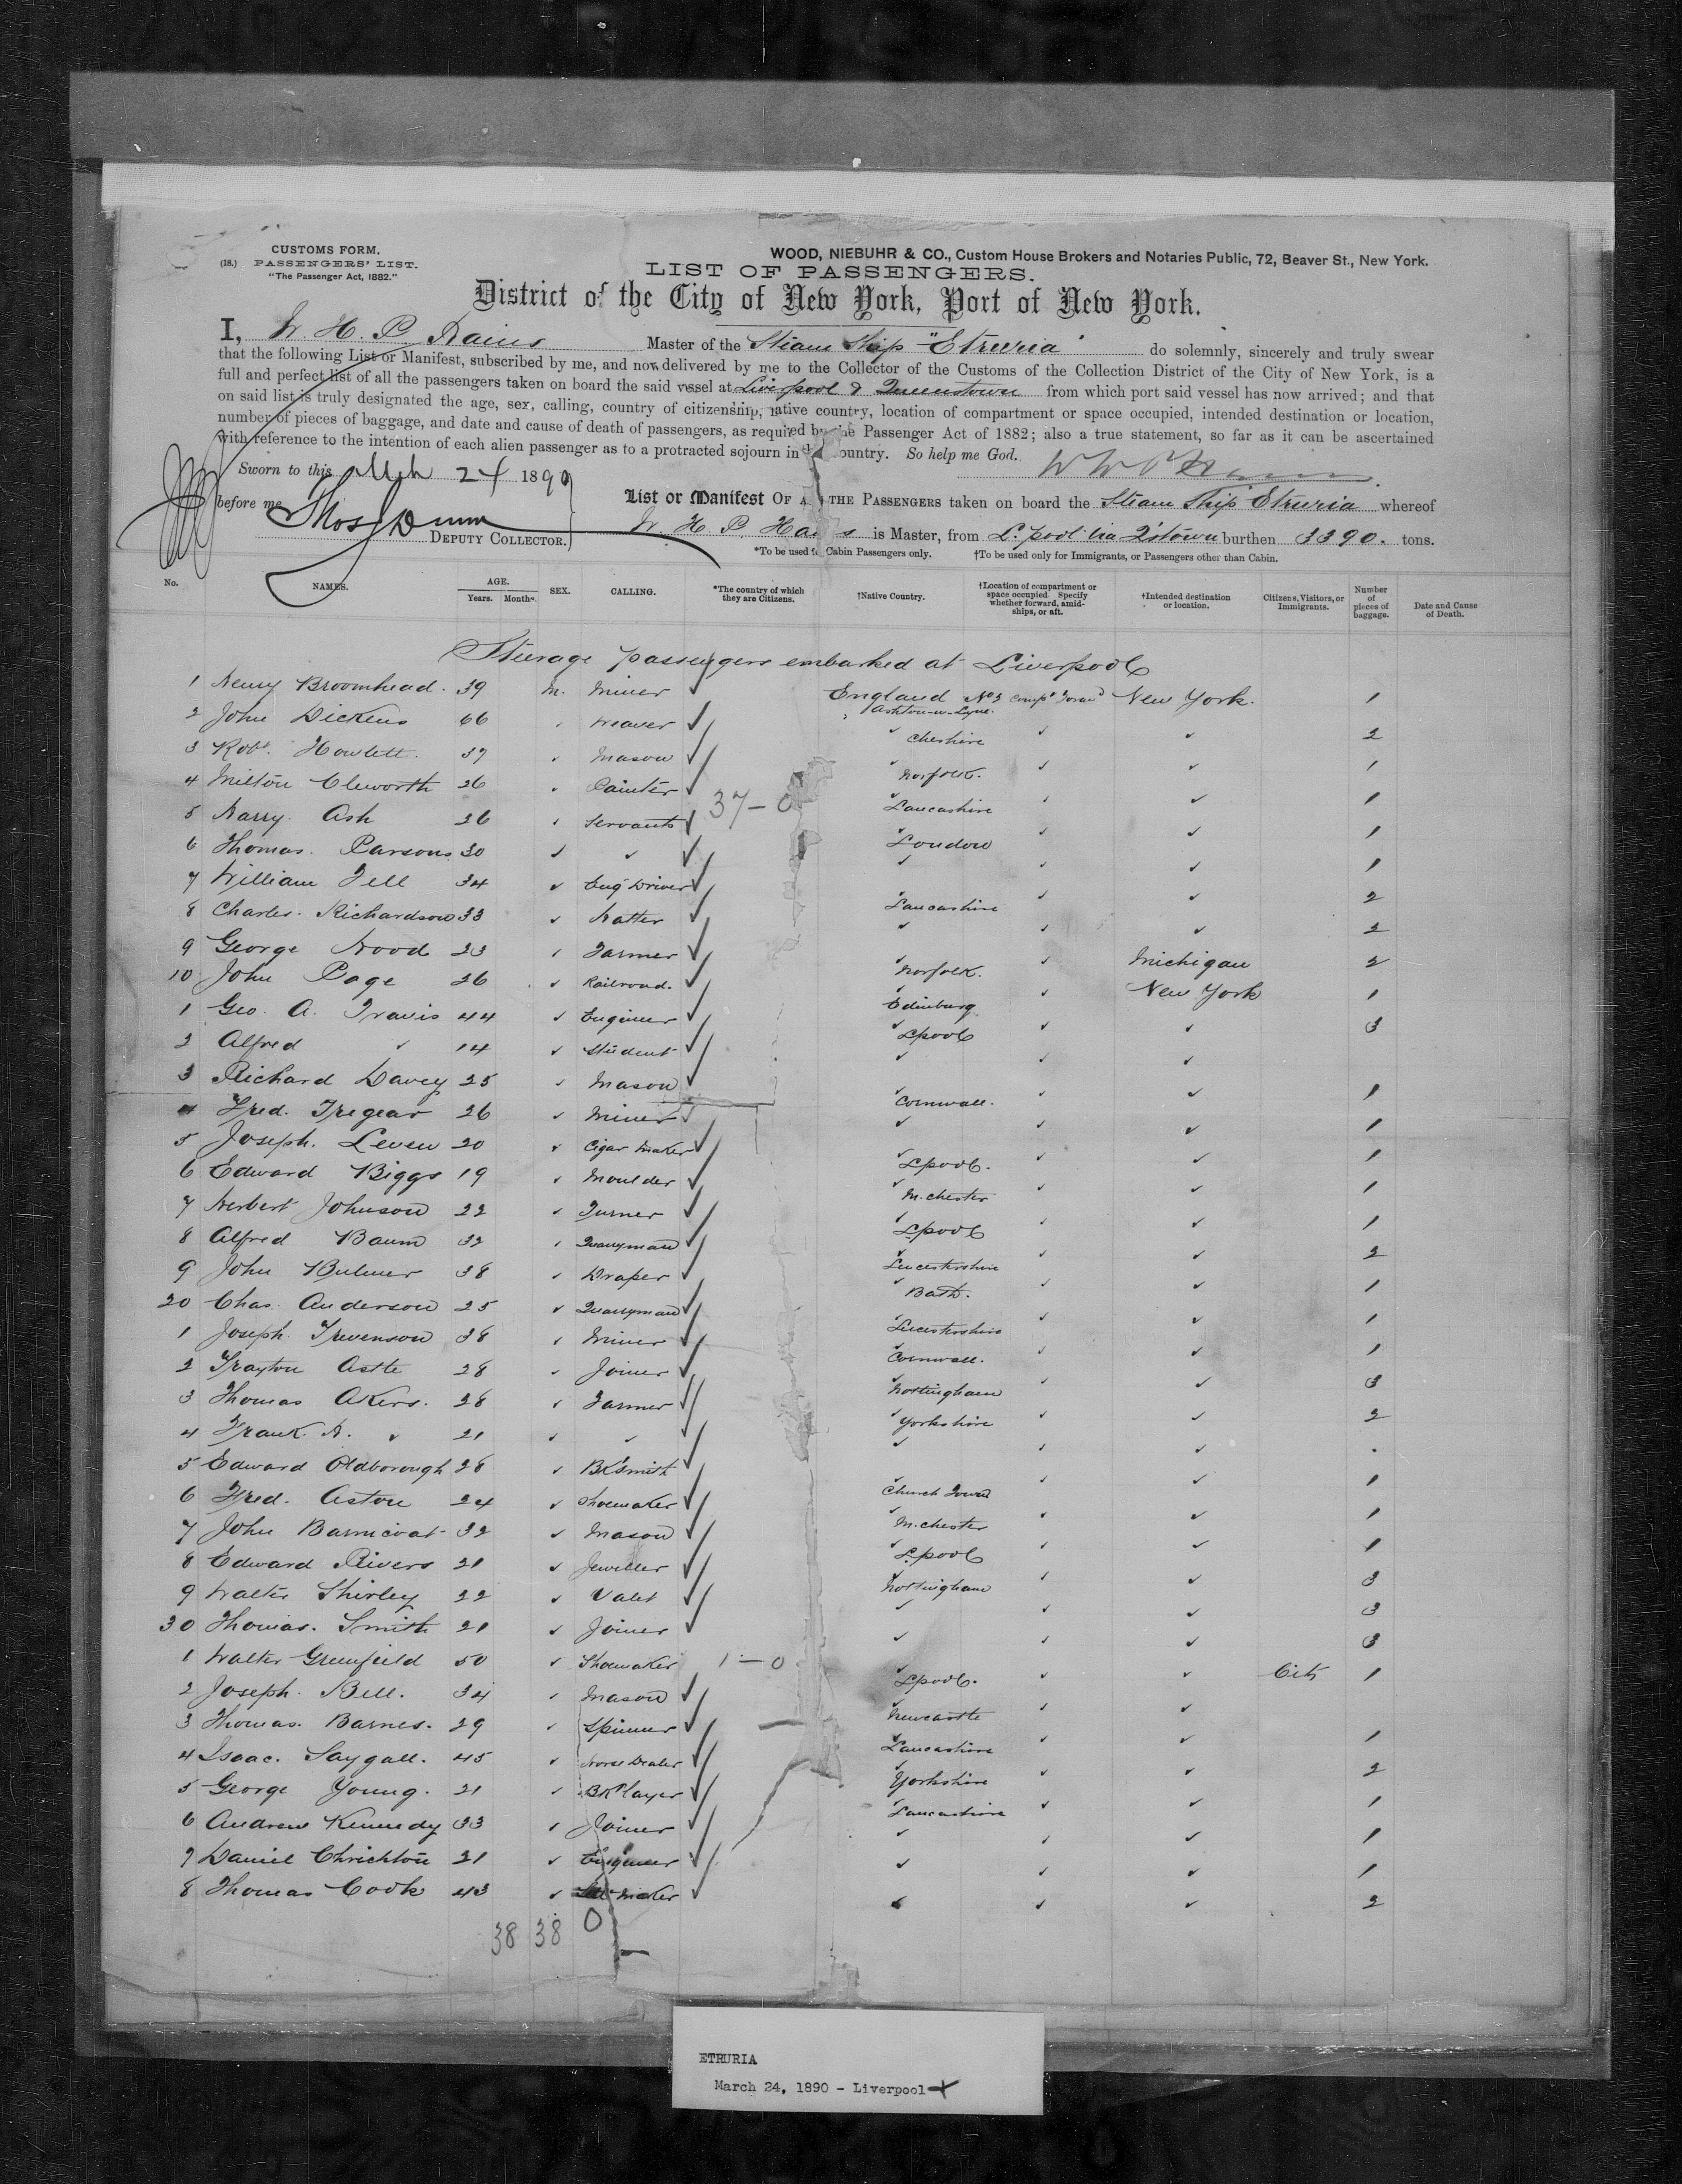 CUSTOMS FORM.
(18.) PASSENGERS' LIST.
"The Passenger Act, 1882."
WOOD, NIEBUHR & CO., Custom House Brokers and Notaries Public, 72, Beaver St., New York.
LIST OF PASSENGERS.
District of the City of New York, Port of New York.
I, W. H. P. Hains Master of the Steam Ship "Etruria" do solemnly, sincerely and truly swear
that the following List or Manifest, subscribed by me, and now delivered by me to the Collector of the Customs of the Collection District of the City of New York, is a
full and perfect list of all the passengers taken on board the said vessel at Liverpool & Queenstown from which port said vessel has now arrived; and that
on said list is truly designated the age, sex, calling, country of citizenship, native country, location of compartment or space occupied, intended destination or location,
number of pieces of baggage, and date and cause of death of passengers, as required by the Passenger Act of 1882; also a true statement, so far as it can be ascertained
with reference to the intention of each alien passenger as to a protracted sojourn in this country. So help me God.
Sworn to this Mch 24 1890
before me
Thos J Dunn
DEPUTY COLLECTOR.
List or Manifest OF ALL THE PASSENGERS taken on board the Steam Ship Etruria whereof
W. H. P. Hains is Master, from L.pool via Q'stown burthen 3390. tons.
*To be used for Cabin Passengers only. †To be used only for Immigrants, or Passengers other than Cabin.
No. NAMES. AGE. Years. Months. SEX. CALLING. *The country of which they are Citizens. †Native Country. †Location of compartment or space occupied Specify whether forward, amidships, or aft. †Intended destination or location. Citizens, Visitors, or Immigrants. Number of pieces of baggage. Date and Cause of Death.
Steerage passengers embarked at Liverpool
1 Henry Broomhead. 39 M. Miner ✓ England Ashton-u-Lyne. No 3 Compt Forwd New York. 1
2 John Dickens 66 " Weaver ✓ ✓ Cheshire ✓ ✓ 2
3 Robt. Howlett. 37 ✓ Mason ✓ ✓ Norfolk. ✓ ✓ 1
4 Milton Cleworth 26 ✓ Painter ✓ ✓ Lancashire ✓ ✓ 1
37-0
5 Harry Ash 26 ✓ Servants ✓ ✓ London ✓ ✓ 1
6 Thomas. Parsons 30 ✓ ✓ ✓ ✓ ✓ ✓ 1
7 William Fell 34 ✓ Eng Driver ✓ ✓ Lancashire ✓ ✓ 2
8 Charles. Richardson 33 ✓ Hatter ✓ ✓ ✓ ✓ 2
9 George Wood 23 ✓ Farmer ✓ ✓ Norfolk. ✓ Michigan 2
10 John Page 26 ✓ Railroad. ✓ ✓ Edinburg ✓ New York 1
1 Geo. A. Travis 44 ✓ Engineer ✓ ✓ Lpool ✓ ✓ 3
2 Alfred ✓ 14 ✓ Student ✓ ✓ ✓ ✓
3 Richard Davey 25 ✓ Mason ✓ ✓ Cornwall. ✓ ✓ 1
4 Fred. Tregear 26 ✓ Miner ✓ ✓ ✓ ✓ 1
5 Joseph. Leven 20 ✓ Cigar Maker ✓ ✓ Lpool. ✓ ✓ 1
6 Edward Biggs 19 ✓ Moulder ✓ ✓ M.chester ✓ ✓ 1
7 Herbert Johnson 22 ✓ Turner ✓ ✓ Lpool ✓ ✓ 1
8 Alfred Baum 32 ✓ Quarryman ✓ ✓ Leicestershire ✓ ✓ 2
9 John Bulmer 38 ✓ Draper ✓ ✓ Bath. ✓ ✓ 1
20 Chas. Anderson 25 ✓ Quarryman ✓ ✓ Leicestershire ✓ ✓ 1
1 Joseph Trevenson 38 ✓ Miner ✓ ✓ Cornwall. ✓ ✓ 1
2 Trayton Astle 28 ✓ Joiner ✓ ✓ Nottingham ✓ ✓ 3
3 Thomas Akers. 28 ✓ Farmer ✓ ✓ Yorkshire ✓ ✓ 2
4 Frank. H. ✓ 21 ✓ ✓ ✓ ✓ ✓ ✓ .
5 Edward Oldborough 28 ✓ Bk'smith ✓ ✓ Church Town ✓ ✓ 1
6 Fred. Aston 24 ✓ Shoemaker ✓ ✓ M.chester ✓ ✓ 1
7 John Barnicoat 32 ✓ Mason ✓ ✓ Lpool ✓ ✓ 1
8 Edward Rivers 21 ✓ Jeweller ✓ ✓ Nottingham ✓ ✓ 3
9 Walter Shirley 22 ✓ Valet ✓ ✓ ✓ ✓ 3
30 Thomas. Smith 21 ✓ Joiner ✓ ✓ ✓ ✓ 3
1 Walter Greenfield 50 ✓ Shoemaker 1-0 ✓ Lpool. ✓ ✓ Citz 1
2 Joseph. Bell. 34 ✓ Mason ✓ ✓ Newcastle ✓ ✓
3 Thomas. Barnes. 29 ✓ Spinner ✓ ✓ Lancashire ✓ ✓ 1
4 Isaac. Saygall. 45 ✓ Horse Dealer ✓ ✓ Yorkshire ✓ ✓ 2
5 George Young. 21 ✓ Bk'layer ✓ ✓ Lancashire ✓ ✓ 1
6 Andrew Kennedy 33 ✓ Joiner ✓ ✓ ✓ ✓ 1
7 Daniel Chrichton 21 ✓ Engineer ✓ ✓ ✓ ✓ 1
8 Thomas Cook 43 ✓ Maker ✓ ✓ ✓ ✓ 2
38 38 0
ETRURIA
March 24, 1890 - Liverpool